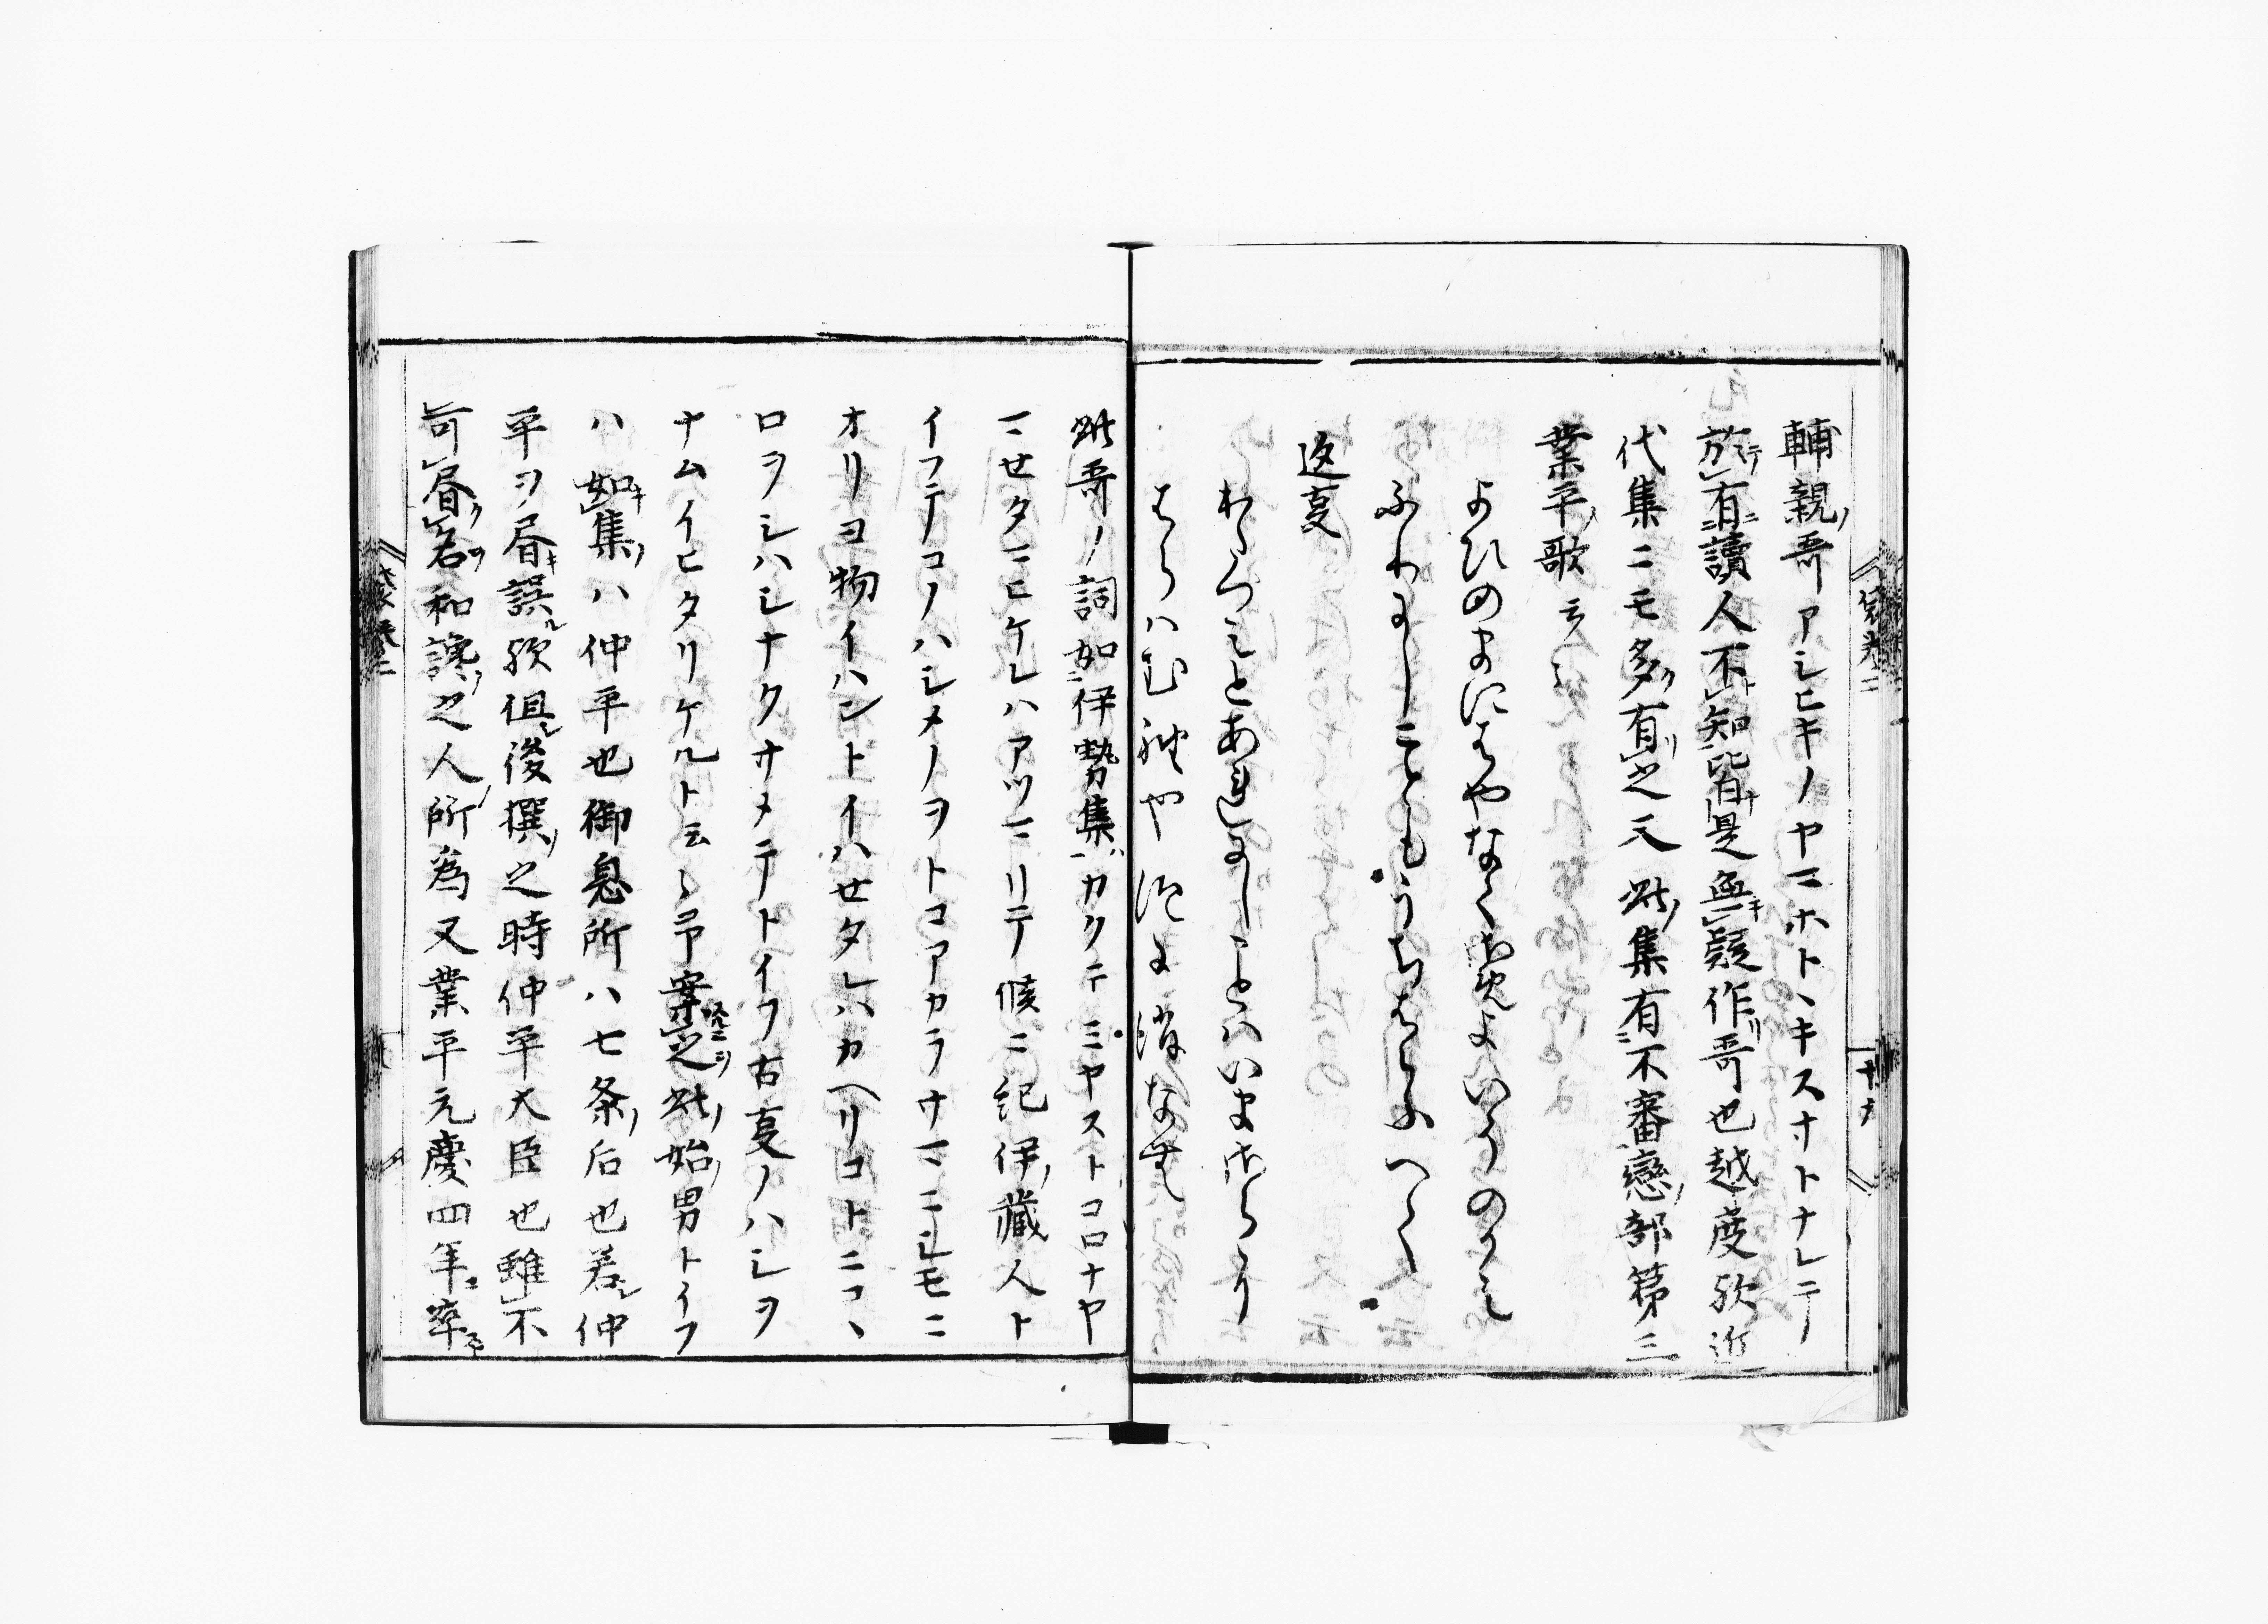 輔親ノ哥アシヒキノヤマホトヽキスサトナレテノ
於テ有讀人不知皆是無疑作哥也越度欤近
代集ニモ多有之又此集有不審戀部第三
業平歌云
よひのまにはやなくさめよいそのかみ
ふりにしこともうちはらふへく
返叓
わたつミとあれにしことハいまさらに
はらハむ袖や沫に消なむ
此哥ノ詞如伊勢集ハカクテミヤストコロナヤ
マセタマヒケレハアツマリテ候ニ記伊藏人ト
イフテコノハシメノヲトコアカラサマニシモニ
オリヨ物イハントイハセタレハカヘリコトニコヽ
ロヲシハシナクサメテトイフ古叓ノハシヲ
ナムイヒタリケルト云々予案之此始男トイフ
ハ如集ハ仲平也御息所ハ七条后也若仲
平ヲ書誤欤但後撰之時仲平大臣也雖不
可書名和讒之人所為又業平元慶四年卒